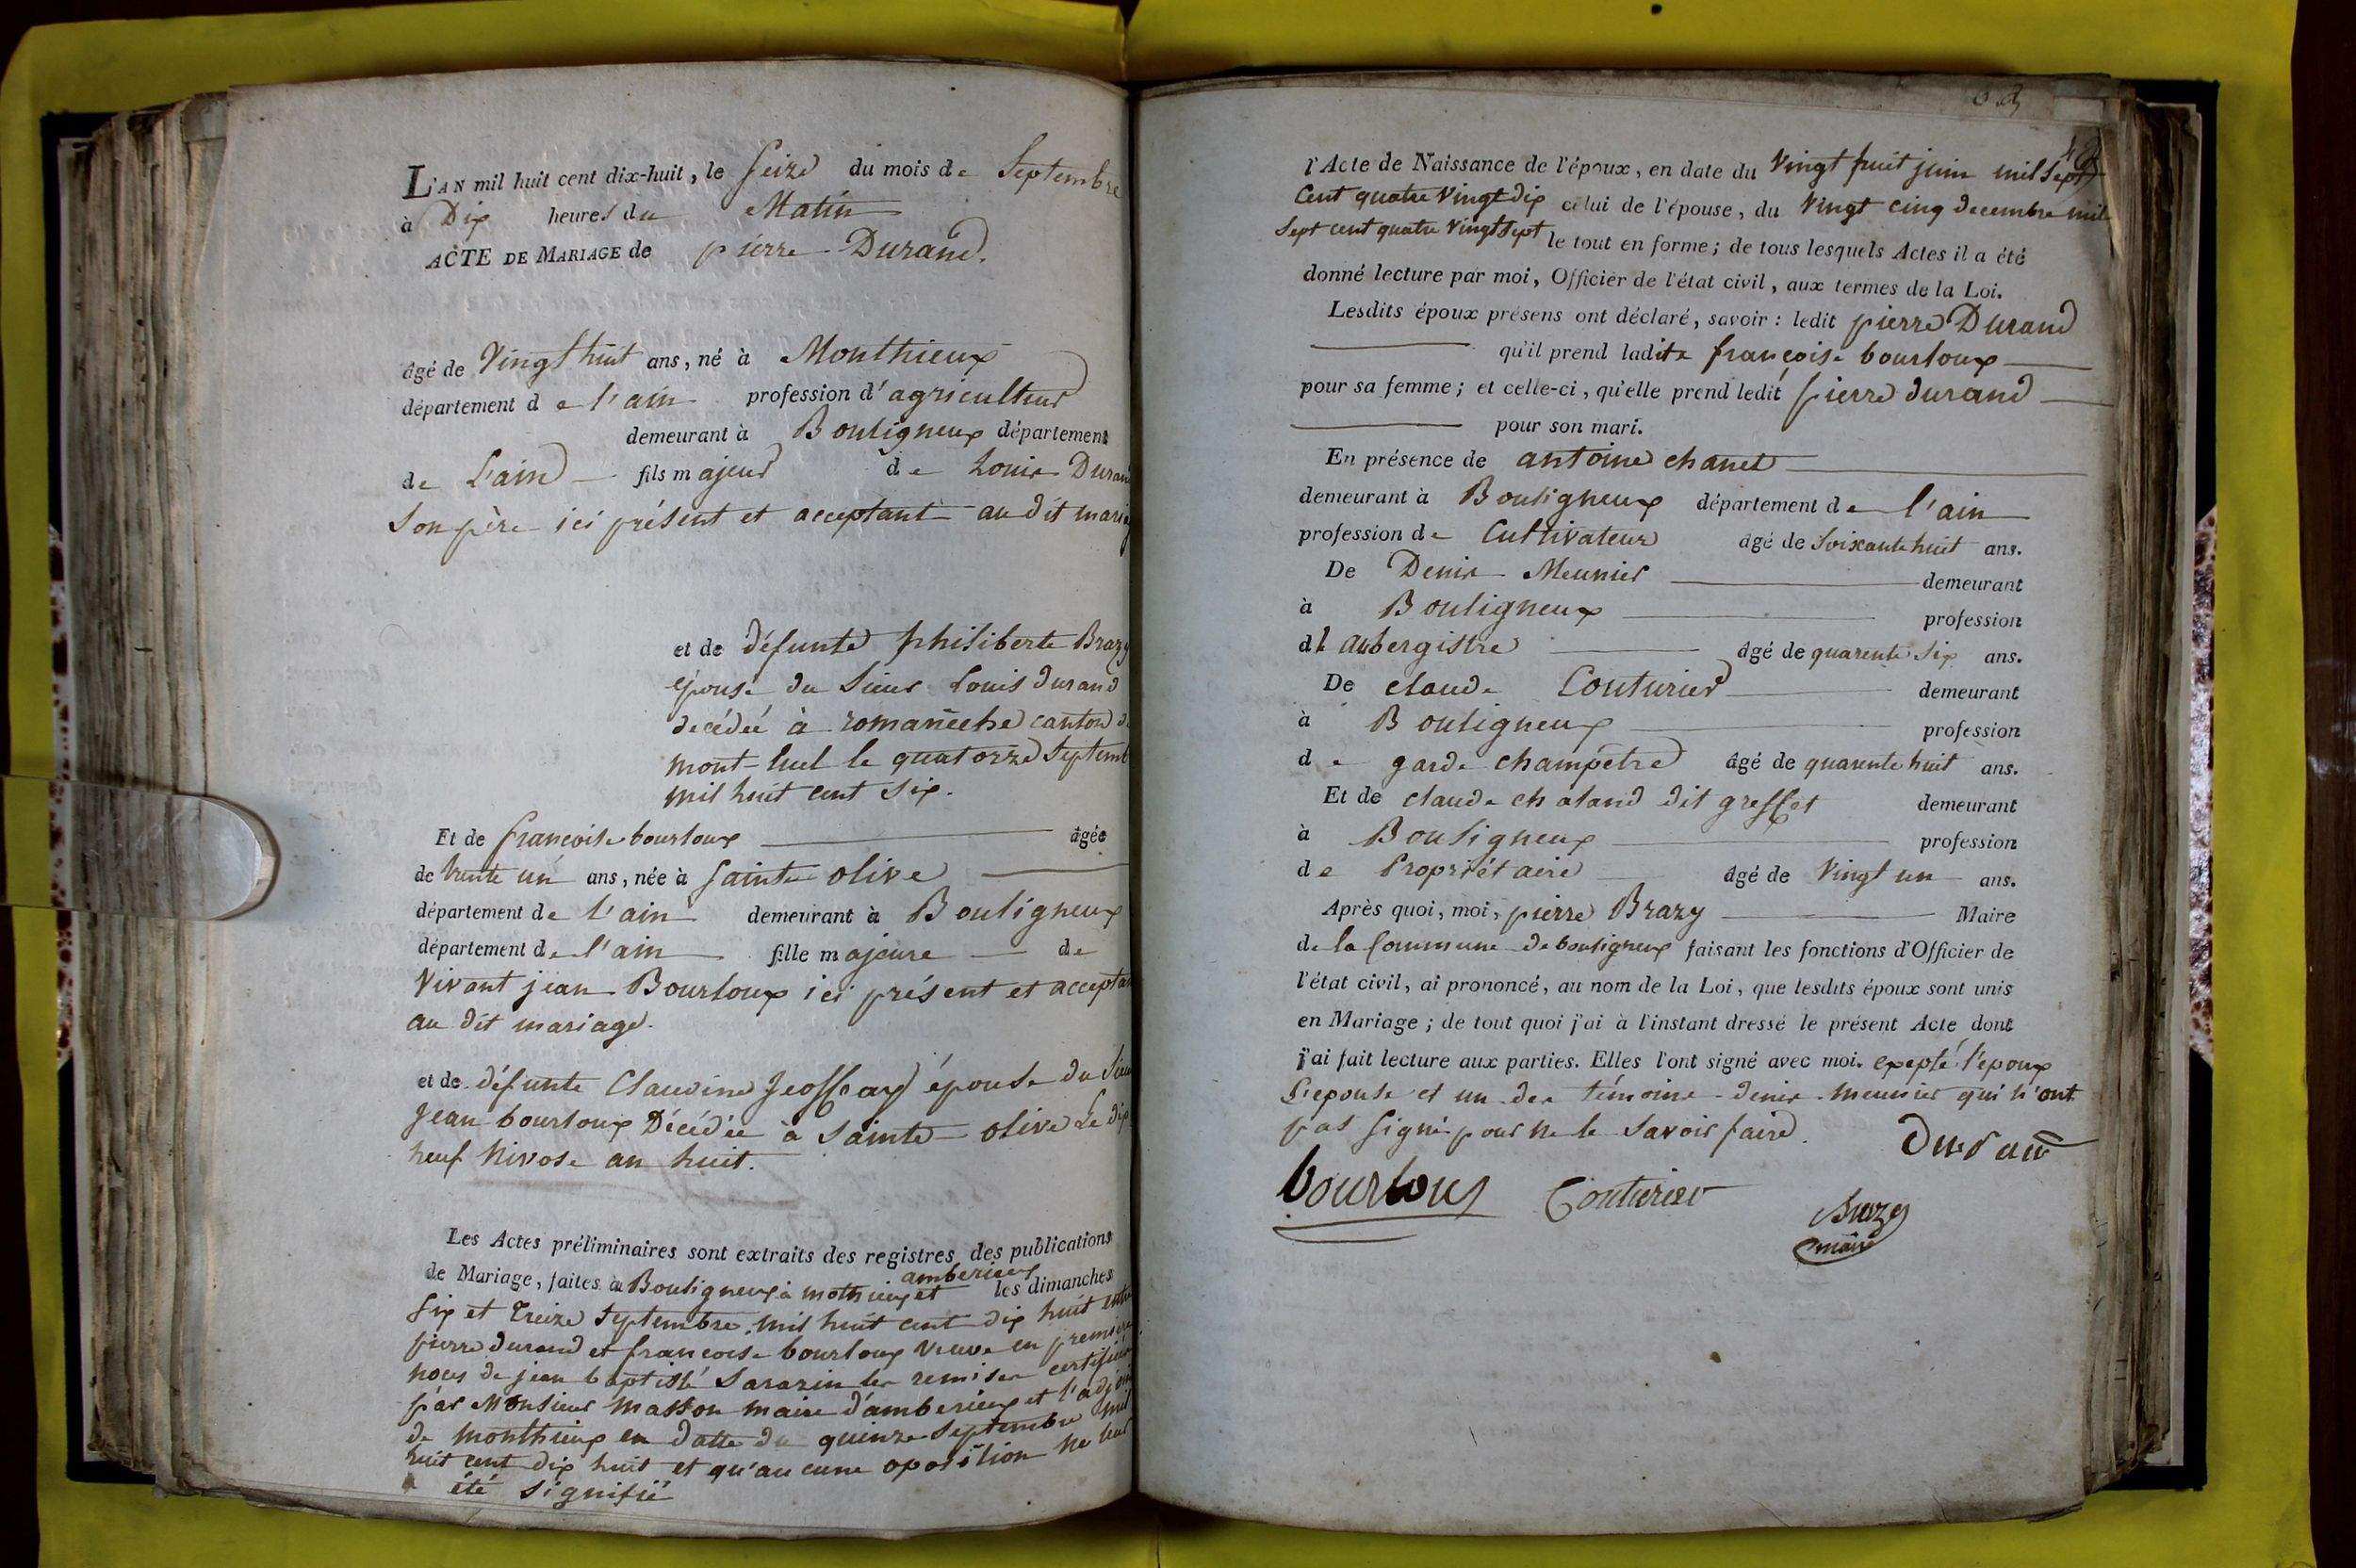 L'AN mil huit cent dix-huit, le seize du mois de Septembre
à Dix heures du Matin
ACTE DE MARIAGE de pierre Durand.
âgé de Vingt huit ans, né à Monthieux
département de l'ain profession d'agriculteur
demeurant à Bouligneux département
de L'ain fils majeur de Louis Durand
Son père ici présent et acceptant au dit mariag
et de défunte philiberte Brazy
épouse du Sieur Louis durand
décédée à romanêche canton d
mont-luel le quatorze Septemb
mil huit cent six.
Et de françoise bourloux âgée
de trente un ans, née à sainte olive
département de l'ain demeurant à Bouligneux
département de l'ain fille majeure de
Vivant jean Bourloux ici présent et acceptan
au dit mariage.
et de défunte Claudine épouse du Sieur
jean bourloux Décédée à Sainte olive Le dix
neuf Nivose an huit.
Les Actes préliminaires sont extraits des registres des publications
amberieux
de Mariage, faites à Bouligneux à mothieux et les dimanches
six et treize Septembre mil huit cent dix huit entre
pierre durand et francoise bourloux veuve en premiere
noces de jean baptiste Sarazin les remises certifiées
par Monsieur Masson maire d'amberieux et l'adjoin
de monthieux en datte du quinze Septembre mil
huit cent dix huit et qu'aucune oposition ne leur
a été signifié
l'Acte de Naissance de l'époux, en date du Vingt huit juin mil Sept
Cent quatre Vingt dix celui de l'épouse, du Vingt cinq decembre mil
Sept cent quatre Vingt Sept le tout en forme; de tous lesquels Actes il a été
donné lecture par moi, Officier de l'état civil, aux termes de la Loi.
Lesdits époux présens ont déclaré, savoir: ledit pierre Durand
qu'il prend ladite françoise bourloux
pour sa femme; et celle-ci, qu'elle prend ledit pierre durand
pour son mari.
En présence de antoine chanel
demeurant à Bouligneux département de l'ain
profession de Cultivateur âgé de Soixante huit ans.
De Denis Meunier demeurant
à Bouligneux profession
d'aubergistre âgé de quarente Six ans.
De claude Couturier demeurant
à Bouligneux profession
de garde champêtre âgé de quarente huit ans.
Et de claude chaland dit greffet demeurant
à Bouligneux profession
de Propriétaire âgé de Vingt un ans.
Après quoi, moi, pierre Brazy Maire
de la Commune de bouligneux faisant les fonctions d'Officier de
l'état civil, ai prononcé, au nom de la Loi, que lesdits époux sont unis
en Mariage; de tout quoi j'ai à l'instant dressé le présent Acte dont
j'ai fait lecture aux parties. Elles l'ont signé avec moi. exepté l'epoux
L'epouse et un des témoins denis meunier qui n'ont
pas signé pour ne le Savoir faire.
Durand
bourloux Couturier
Brazy
maire